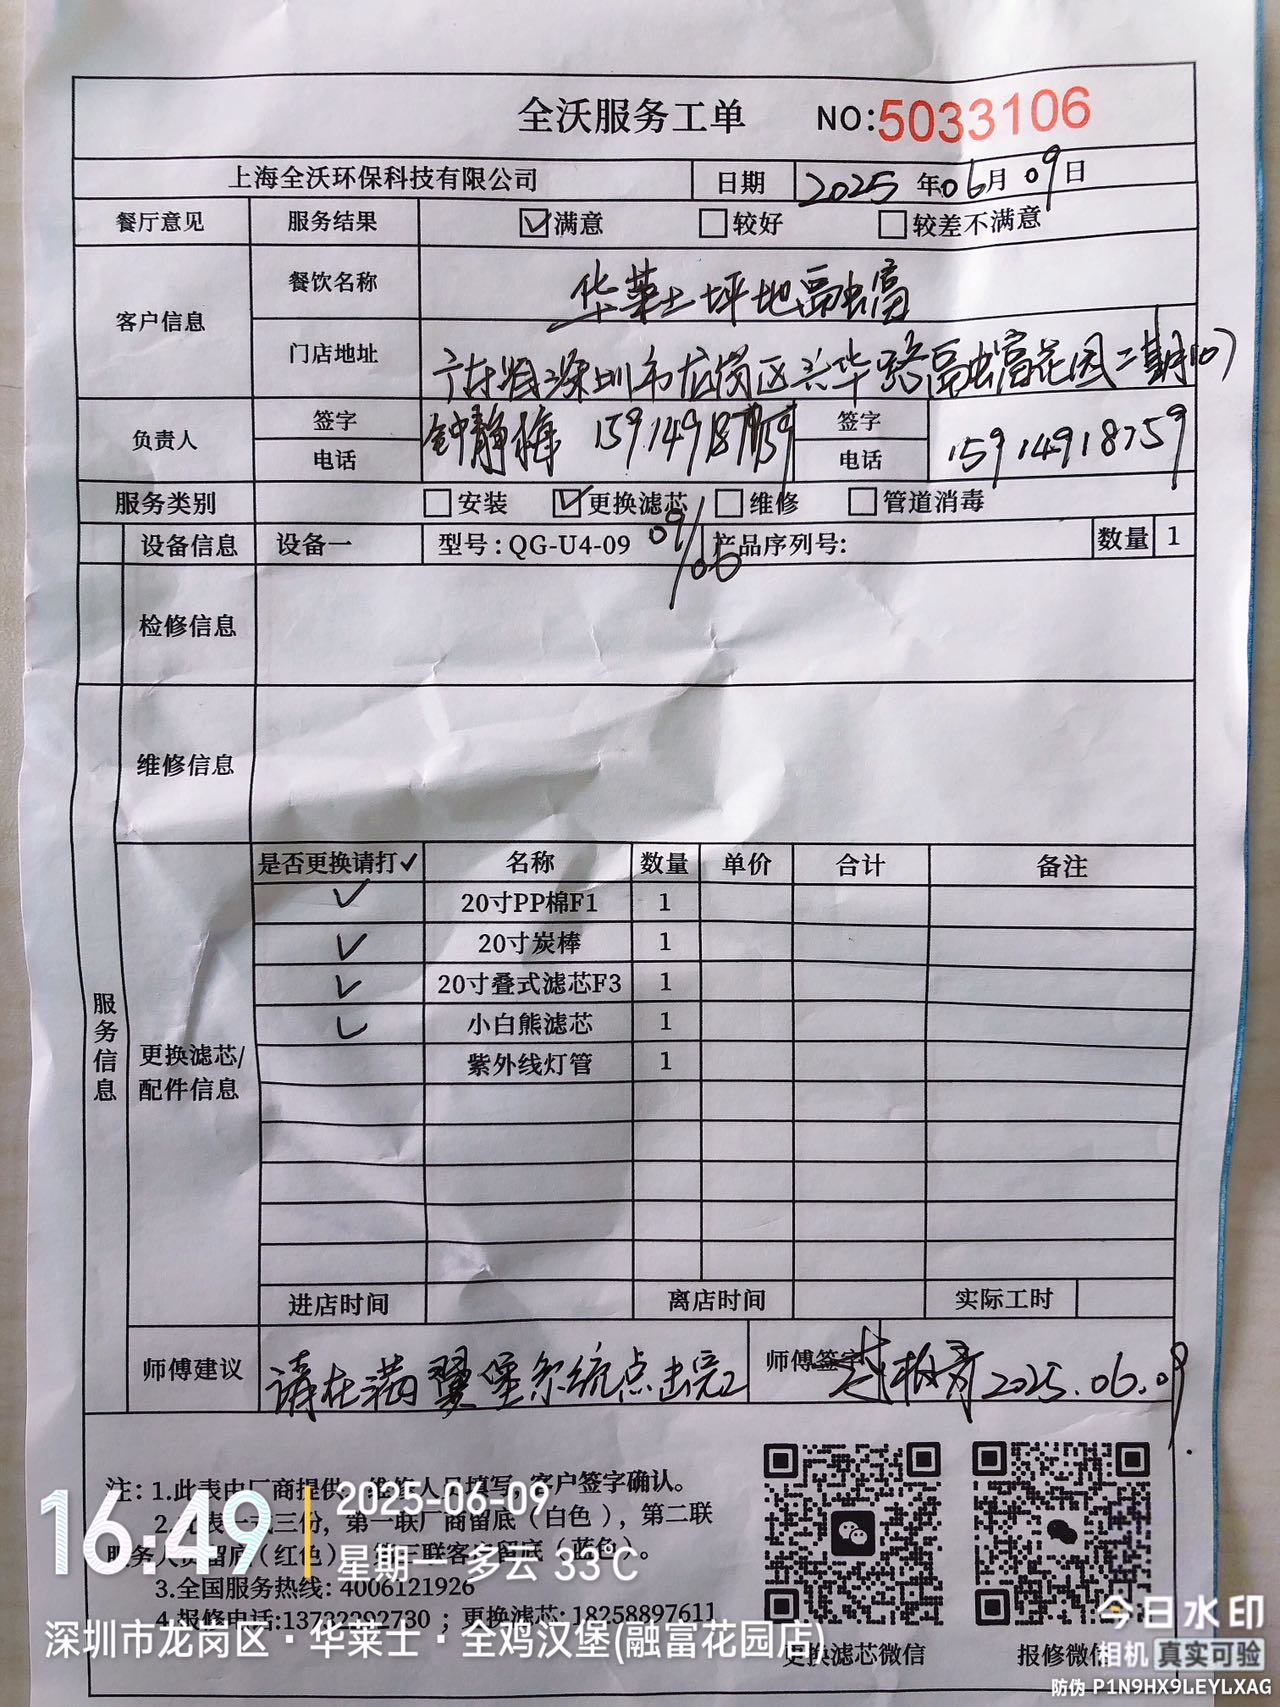 全沃服务工单 NO:5033106
上海全沃环保科技有限公司 日期 2025年06月09日
餐厅意见 服务结果 满意 较好 较差不满意
客户信息 餐饮名称 华莱士坪地融富
门店地址 广东省深圳市龙岗区兴华路融富花园二期107
负责人 签字 钟静梅 15914918759 签字
电话 电话 15914918759
服务类别 安装 更换滤芯 维修 管道消毒
设备信息 设备一 型号:QG-U4-09 09/06 产品序列号: 数量 1
检修信息
维修信息
服务信息
更换滤芯/
配件信息
是否更换请打✓ 名称 数量 单价 合计 备注
✓ 20寸PP棉F1 1
✓ 20寸炭棒 1
✓ 20寸叠式滤芯F3 1
✓ 小白熊滤芯 1
紫外线灯管 1
进店时间 离店时间 实际工时
师傅建议 请在满翼堡系统点击完 师傅签字 2025.06.09
注: 1.此表由厂商提供, 维修人员填写, 客户签字确认。
2.此表一式三份, 第一联厂商留底(白色), 第二联
服务人员留底(红色), 第三联客户留底(蓝色)。
3.全国服务热线: 4006121926
4.报修电话:13732292730 ; 更换滤芯: 18258897611
更换滤芯微信 报修微信
16:49 2025-06-09
星期一 多云 33°C
深圳市龙岗区·华莱士·全鸡汉堡(融富花园店)
今日水印
相机 真实可验
防伪 P1N9HX9LEYLXAG